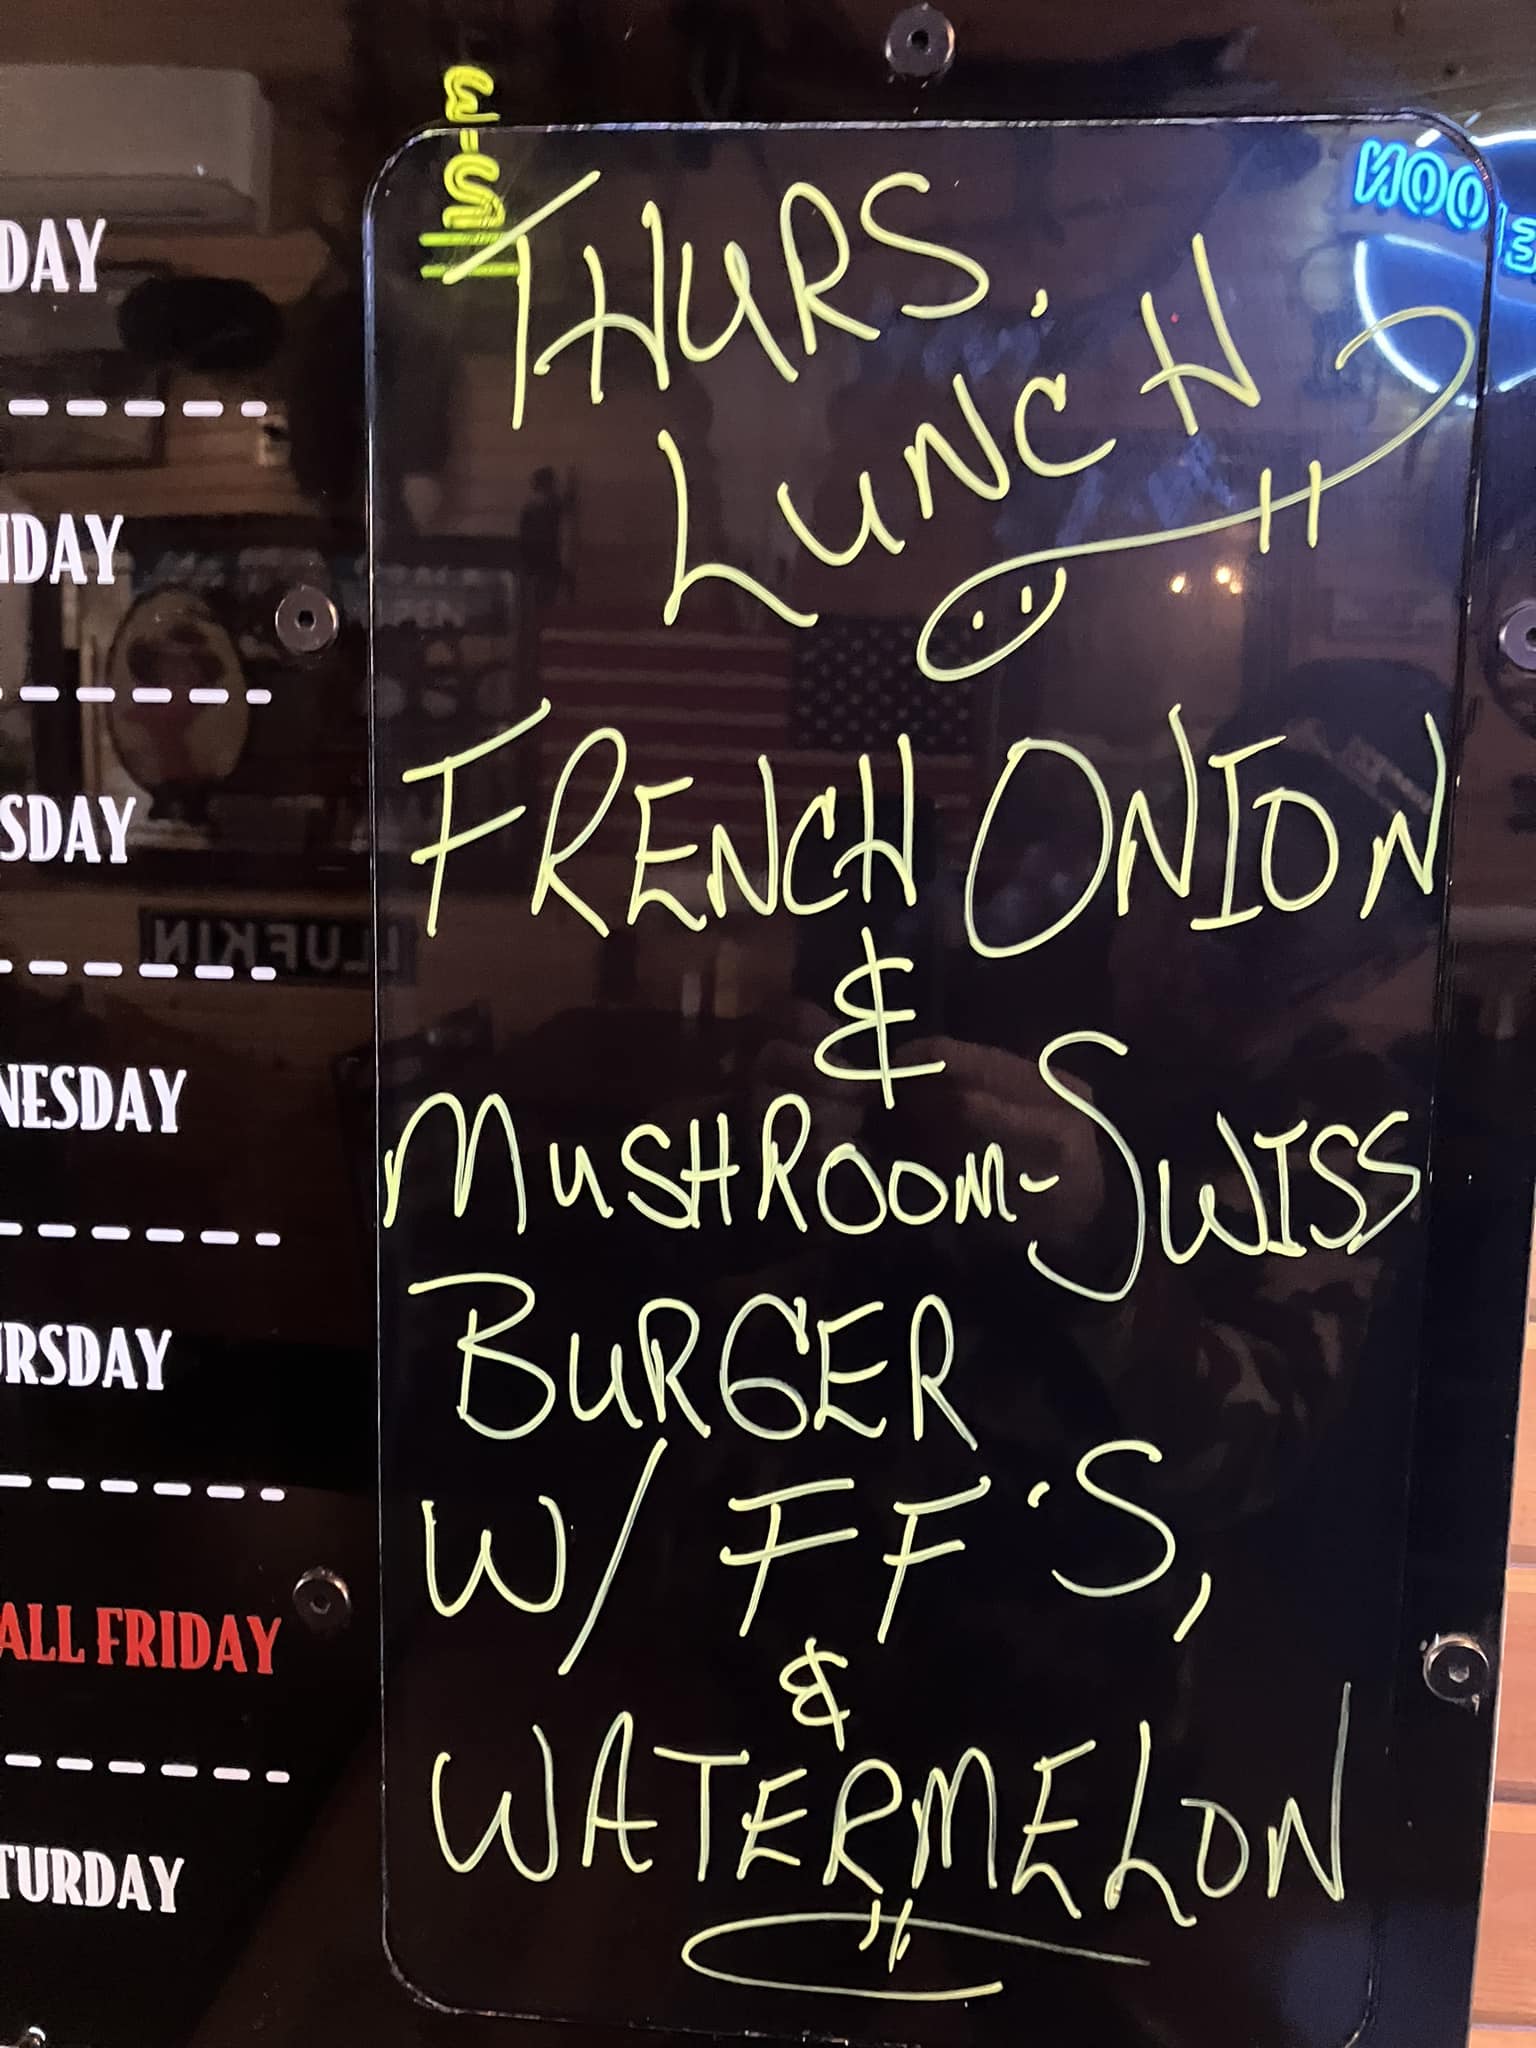 THURS.
LUNCH
FRENCH ONION
&
MUSHROOM-SWISS
BURGER
W/ FF'S,
&
WATERMELON
DAY
NDAY
SDAY
NESDAY
URSDAY
ALL FRIDAY
TURDAY
LUFKIN